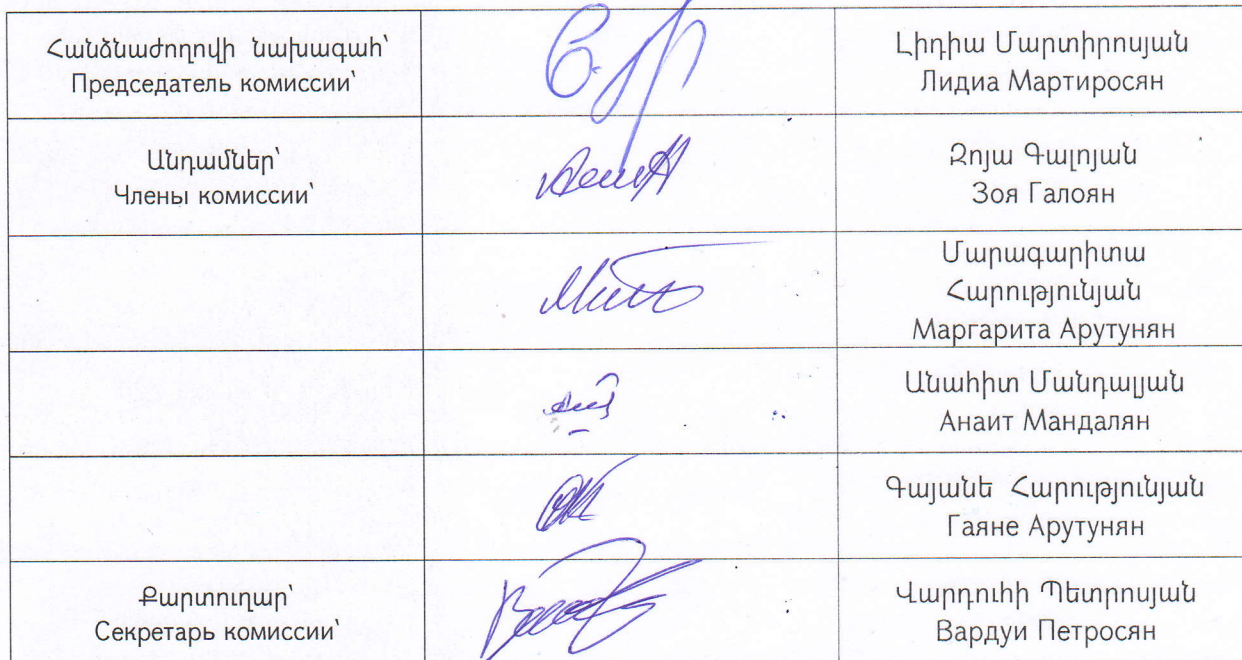 Հանձնաժողովի նախագահ՝
Председатель комиссии՝
Լիդիա Մարտիրոսյան
Лидиа Мартиросян
Անդամներ՝
Члены комиссии՝
Զոյա Գալոյան
Зоя Галоян
Մարագարիտա
Հարությունյան
Маргарита Арутунян
Անահիտ Մանդալյան
Анаит Мандалян
Գայանե Հարությունյան
Гаяне Арутунян
Քարտուղար՝
Секретарь комиссии՝
Վարդուհի Պետրոսյան
Вардуи Петросян